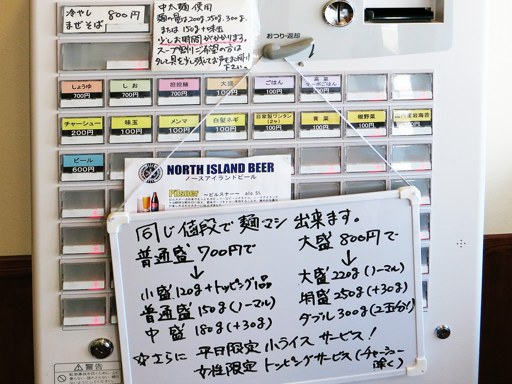 冷やし 800円
まぜそば
中太麺使用
麺の量は200g.250g.300g.
または150g+味玉
少しお時間がかかります。
スープ割りご希望の方は
下さい。
おつり・返却
しょうゆ 700円
しお 700円
担担麺 700円
大盛 100円
ごはん 100円
700円
チャーシュー 200円
味玉 100円
メンマ 100円
白髪ネギ 100円
自家製ワンタン 100円
青菜 100円
根野菜 100円
100円
ビール 600円
NORTH ISLAND BEER
ノースアイランドビール
Pilsner ～ピルスナー～
同じ値段で麺マシ出来ます。
普通盛700円で
↓
小盛120g+トッピング1品
普通盛150g(ノーマル)
中盛180g(+30g)
大盛800円で
↓
大盛220g(ノーマル)
特盛250g(+30g)
ダブル300g(2玉分)
☆さらに 平日限定 小ライスサービス!
女性限定 トッピングサービス(チャーシュー
除く)
警告